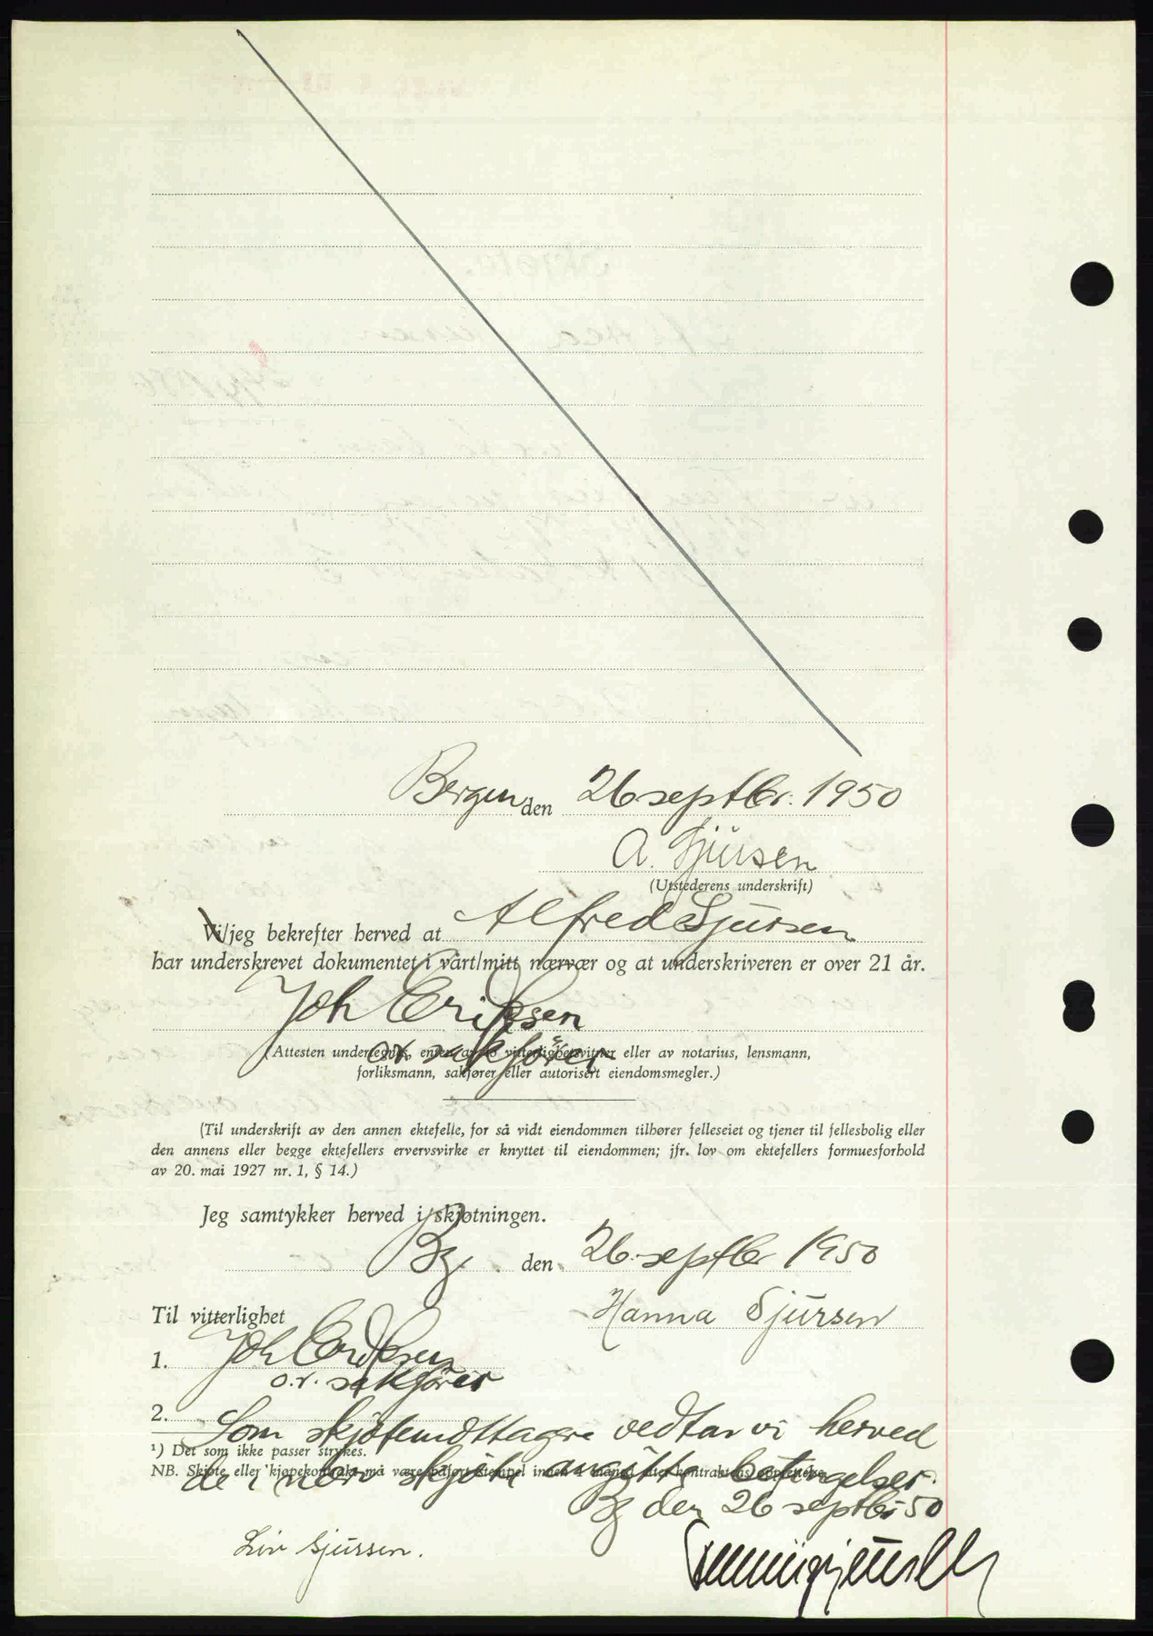 Bergen den 26 septbr. 1950
A. Sjursen
(Utstederens underskrift)
Vi/jeg bekrefter herved at Alfred Sjursen
har underskrevet dokumentet i vårt/mitt nærvær og at underskriveren er over 21 år.
Joh Eriksen
o.r. sakfører
(Attesten undertegnes enten av to vitterlighetsvitner eller av notarius, lensmann,
forliksmann, sakfører eller autorisert eiendomsmegler.)
(Til underskrift av den annen ektefelle, for så vidt eiendommen tilhører felleseiet og tjener til fellesbolig eller
den annens eller begge ektefellers ervervsvirke er knyttet til eiendommen; jfr. lov om ektefellers formuesforhold
av 20. mai 1927 nr. 1, § 14.)
Jeg samtykker herved i skjøtningen.
Bg. den 26. septbr 1950
Til vitterlighet Hanna Sjursen
1. Joh Eriksen
o.r. sakfører
2.
Som skjøtemottagere vedtar vi herved
¹) Det som ikke passer strykes.
NB. Skjøte eller kjøpekontrakt må være påført stempel innen
de i nær skjøte angitte betingelser.
Bg den 26 septbr 50
Liv Sjursen.